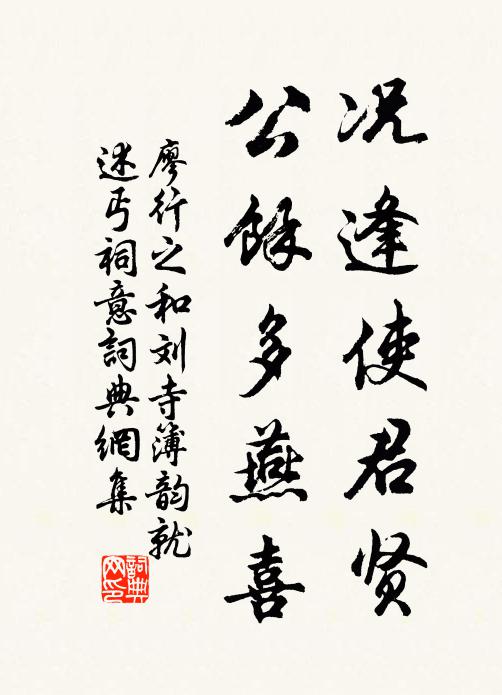 况逢使君贤
公馀多燕喜
廖行之和刘寺簿韵就
述丐祠意詞典網集
詞典網印